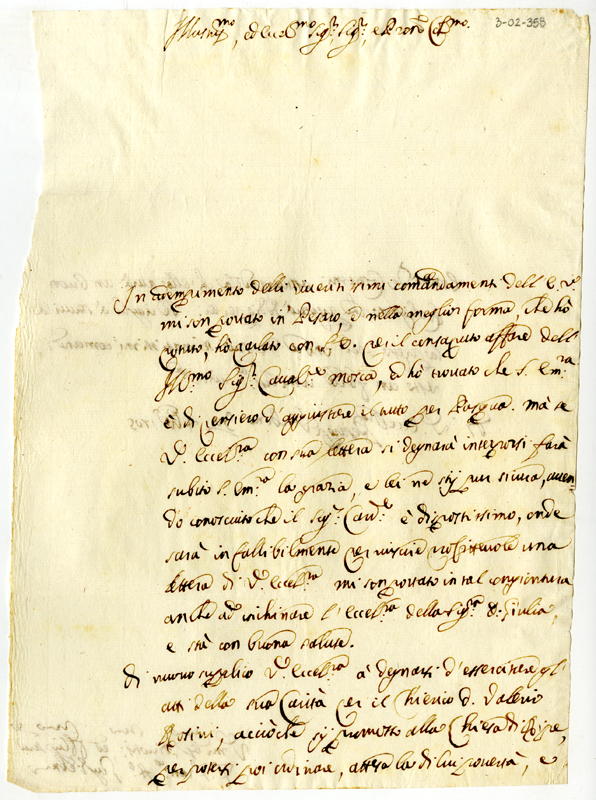 3-02-358
Illustr.mo, ed Ecc.mo Sig.r Sig.r, e Pron
In adempimento delli riveriti simi comandamenti dell' E. V.
mi son portato in Pesaro, e nella meglior forma, che hò
potuto, hò parlato con S. E. per il consaputo affare dell'
Ill.mo Sig.r Caval.e Mosca, ed hò trovato che S. Em.ra
è di pensiero d'aggiustare il tutto per Pasqua. mà se
V. Eccell.za con sua lettera si degnarà interporsi farà
subito S. Em.za la grazia, e lei ne stij pur sicura, aven
do conosciuto che il Sig.r Card.e è dispostissimo, onde
sarà infallibilmente per riuscire profittevole una
lettera di V. Eccell.za mi son portato in tal congiuntura
anche ad inchinare l'Eccell.za della Sig.ra D. Giulia,
e stà con buona salute.
di nuovo supplico V. Eccell.za à degnarsi d'essercitare gl'
atti della sua Carità per il Chierico D. Valerio
Rosini, acciòche sij promosso alla Chiesa di
per potersi poi ordinare, attesa la di lui povertà, e